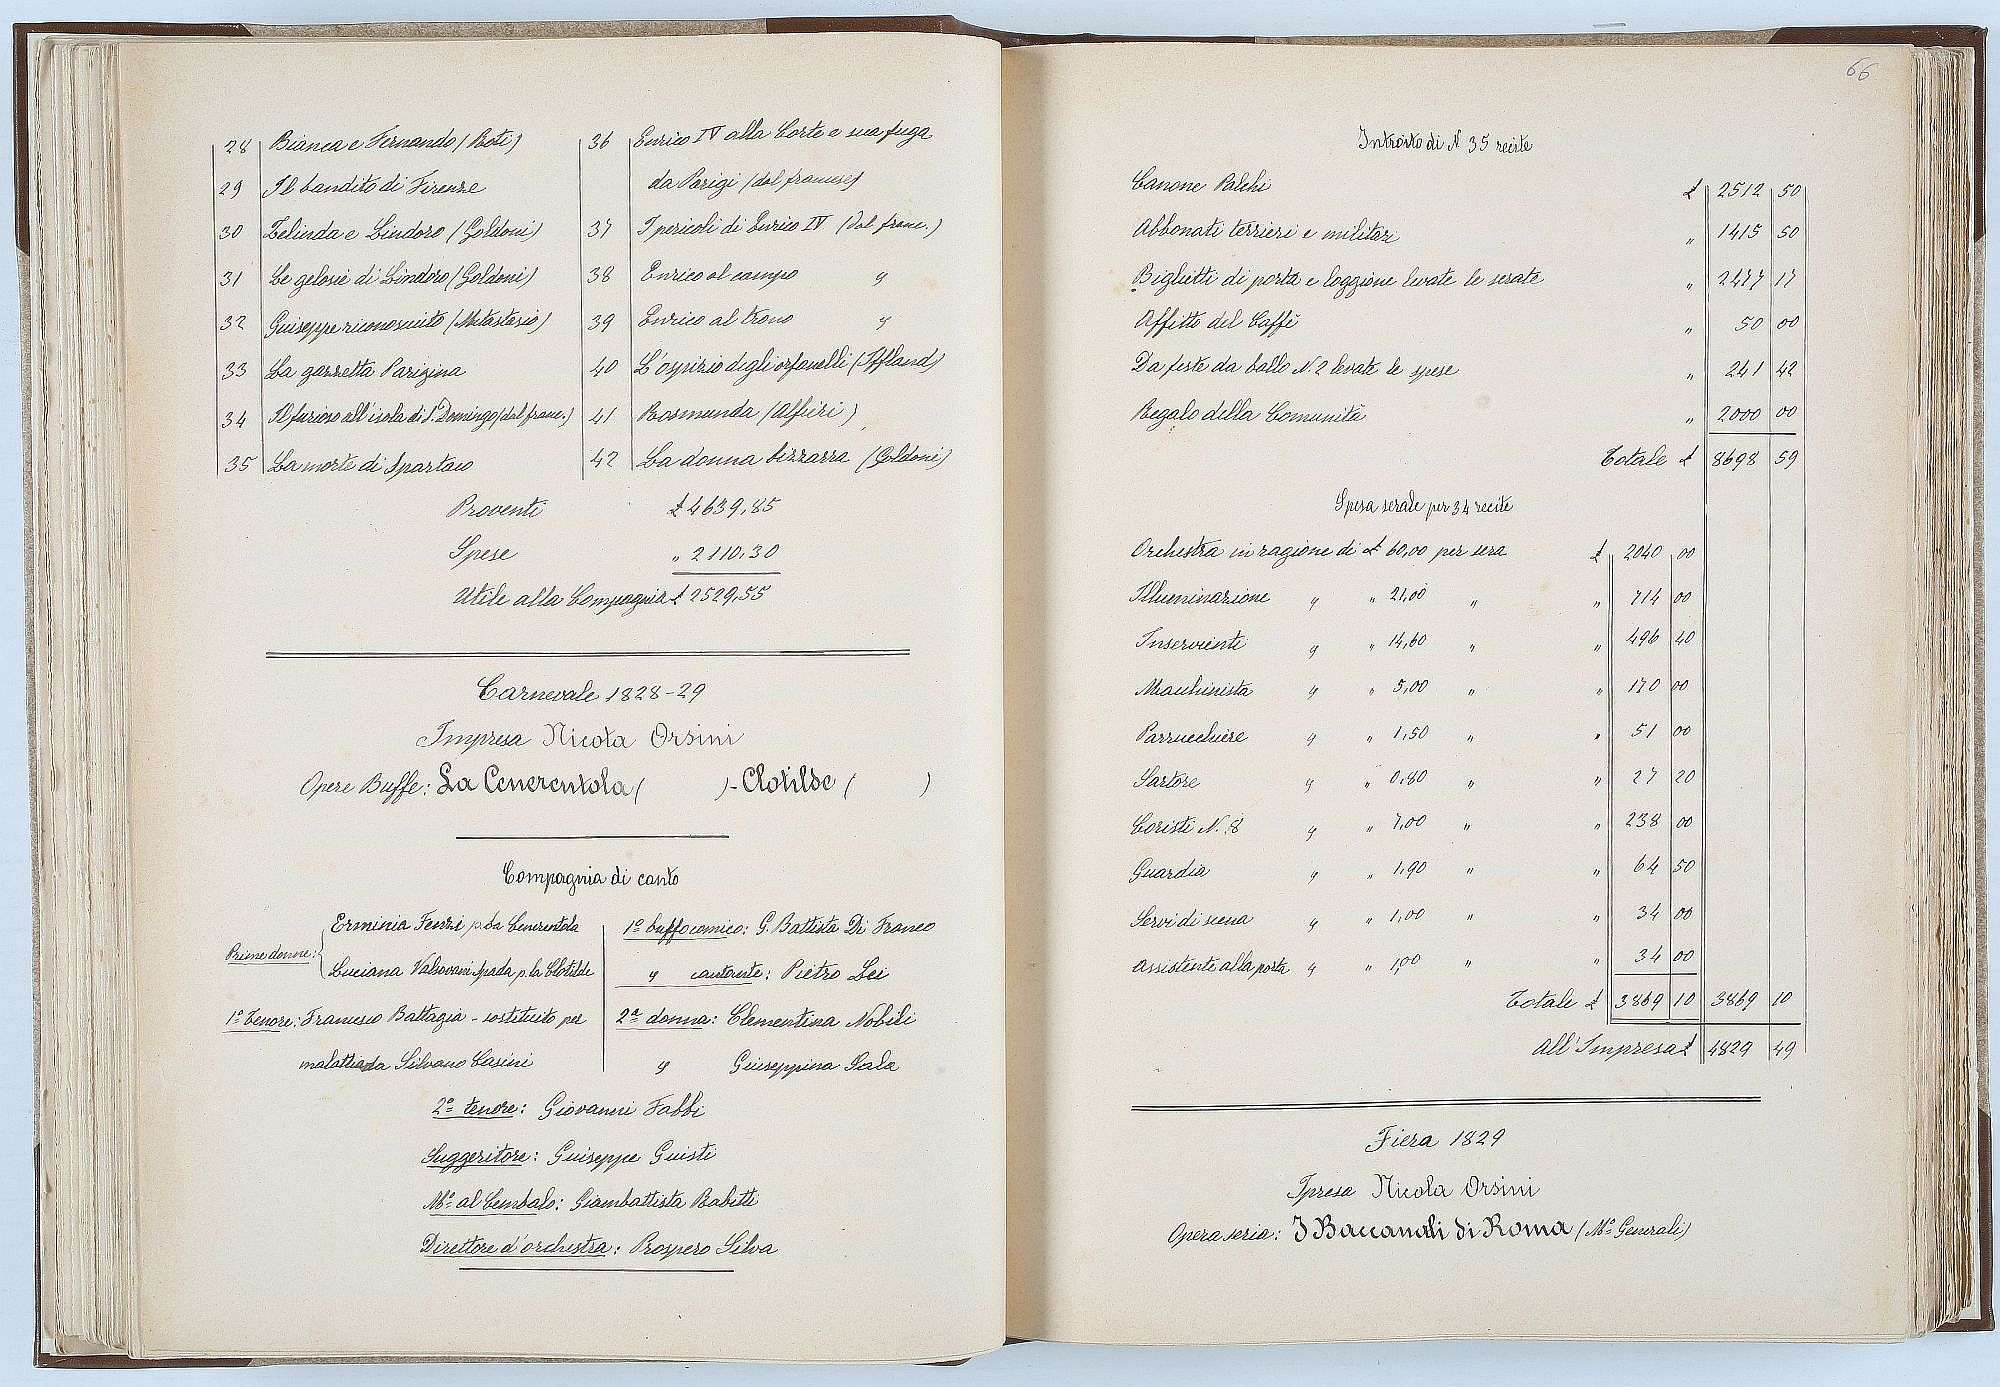 28 Bianca e Fernando (Roti)
29 Il bandito di Firenze
30 Zelinda e Lindoro (Goldoni)
31 Le gelosie di Lindoro (Goldoni)
32 Guiseppe riconosciuto (Metastasio)
33 La gazzetta Parigina
34 Il furioso all'isola di S. Domingo (dal franc.)
35 La morte di Spartaco
36 Enrico IV alla Corte e sua fuga
da Parigi (dal francese)
37 I pericoli di Enrico IV (dal franc.)
38 Enrico al campo "
39 Enrico al trono "
40 L'ospizio degli orfanelli (Iffland)
41 Rosmunda (Alfieri)
42 La donna bizzarra (Goldoni)
Proventi £ 4639,85
Spese " 2110,30
Utile alla Compagnia £ 2529,55
Carnevale 1828-29
Impresa Nicola Orsini
Opere Buffe: La Cenerentola ( ) - Clotilde ( )
Compagnia di canto
Prime donne: Erminia Fenzi p. La Cenerentola
Luciana Valsovani Spada p. la Clotilde
1º Tenore: Francesco Battagia - sostituito per
malattia da Silvano Casini
1º buffo comico: G. Battista Di Franco
" cantante: Pietro Lei
2ª donna: Clementina Nobili
" Giuseppina Sala
2º tenore: Giovanni Fabbi
Suggeritore: Guiseppe Guisti
Mº al Cembalo: Giambattista Rabitti
Direttore d'orchestra: Prospero Silva
66
Introito di N 35 recite
Canone Palchi £ 2512 50
Abbonati terrieri e militari " 1415 50
Biglietti di porta e loggione levate le serate " 2477 17
Affitto del Caffè " 50 00
Da feste da ballo N. 2 levate le spese " 241 42
Regalo della Comunità " 2000 00
Totale £ 8698 59
Spesa serale per 34 recite
Orchestra in ragione di £ 60,00 per sera £ 2040 00
Illuminazione " " 21,00 " " 714 00
Inservienti " " 14,60 " " 496 40
Macchinista " " 5,00 " " 170 00
Parrucchiere " " 1,50 " " 51 00
Sartore " " 0,80 " " 27 20
Coristi N. 8 " " 7,00 " " 238 00
Guardia " " 1,90 " " 64 50
Servi di scena " " 1,00 " " 34 00
Assistente alla porta " " 1,00 " " 34 00
Totale £ 3869 10 3869 10
All'Impresa £ 4829 49
Fiera 1829
Ipresa Nicola Orsini
Opera seria: I Baccanali di Roma (Mº Generali)